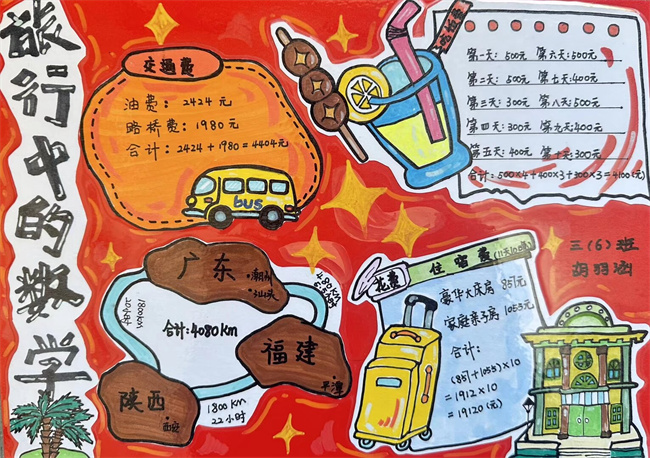 旅行中的数学
交通费
油费：2424元
路桥费：1980元
合计：2424+1980=4404元
bus
吃饭费
第一天：500元 第六天：500元
第二天：500元 第七天：400元
第三天：300元 第八天：500元
第四天：300元 第九天：400元
第五天：400元 第十天：300元
合计：500×4+400×3+300×3=4100(元)
三(6)班
胡羽涵
广东
潮州
汕头
福建
平潭
陕西
西安
合计：4080km
1800km
20小时
480km
1800km
22小时
花费
住宿费
豪华大床房 857元
家庭亲子房 1055元
合计：
(857+1055)×10
=1912×10
=19120(元)